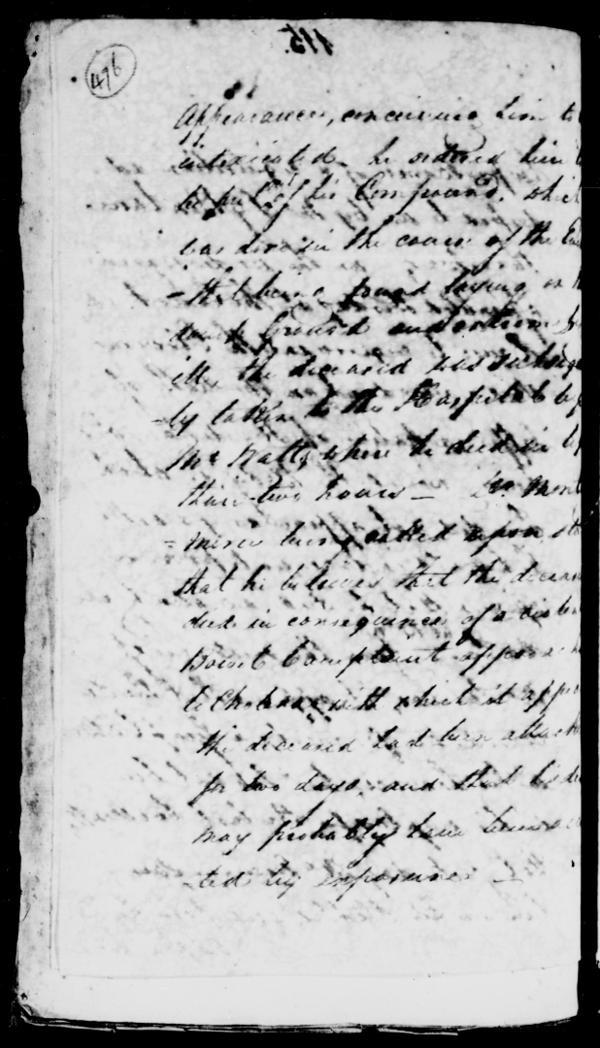 476
115.
Appearance, conceiving him to
intoxicated he ordered him
to be put out of his Compound, which
was done in the course of the Eve
-that being found laying on
damp Ground and extremely
ill, the deceased was
-ly taken to the Hospital by
Mr Natty where he died in
than two hours — Dr Mont
=merie being called upon, sta
that he believes that the deceas
died in consequence of a violent
bowel Complaint approach
to Cholera with which it appe
the deceased had been attack
for two days, and that his de
may probably have been
-ted by exposure —